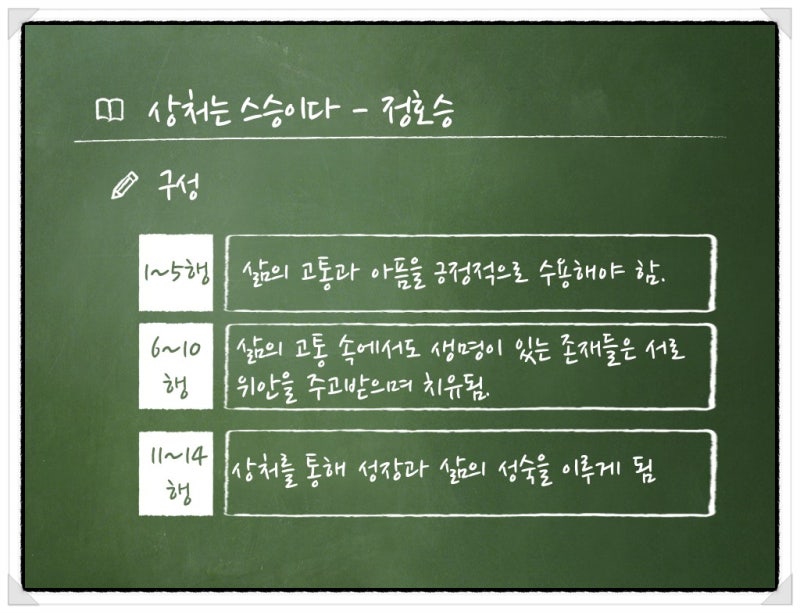 상처는 스승이다 - 정호승
구성
1~5행
삶의 고통과 아픔을 긍정적으로 수용해야 함.
6~10
행
삶의 고통 속에서도 생명이 있는 존재들은 서로
위안을 주고받으며 치유됨.
11~14
행
상처를 통해 성장과 삶의 성숙을 이루게 됨